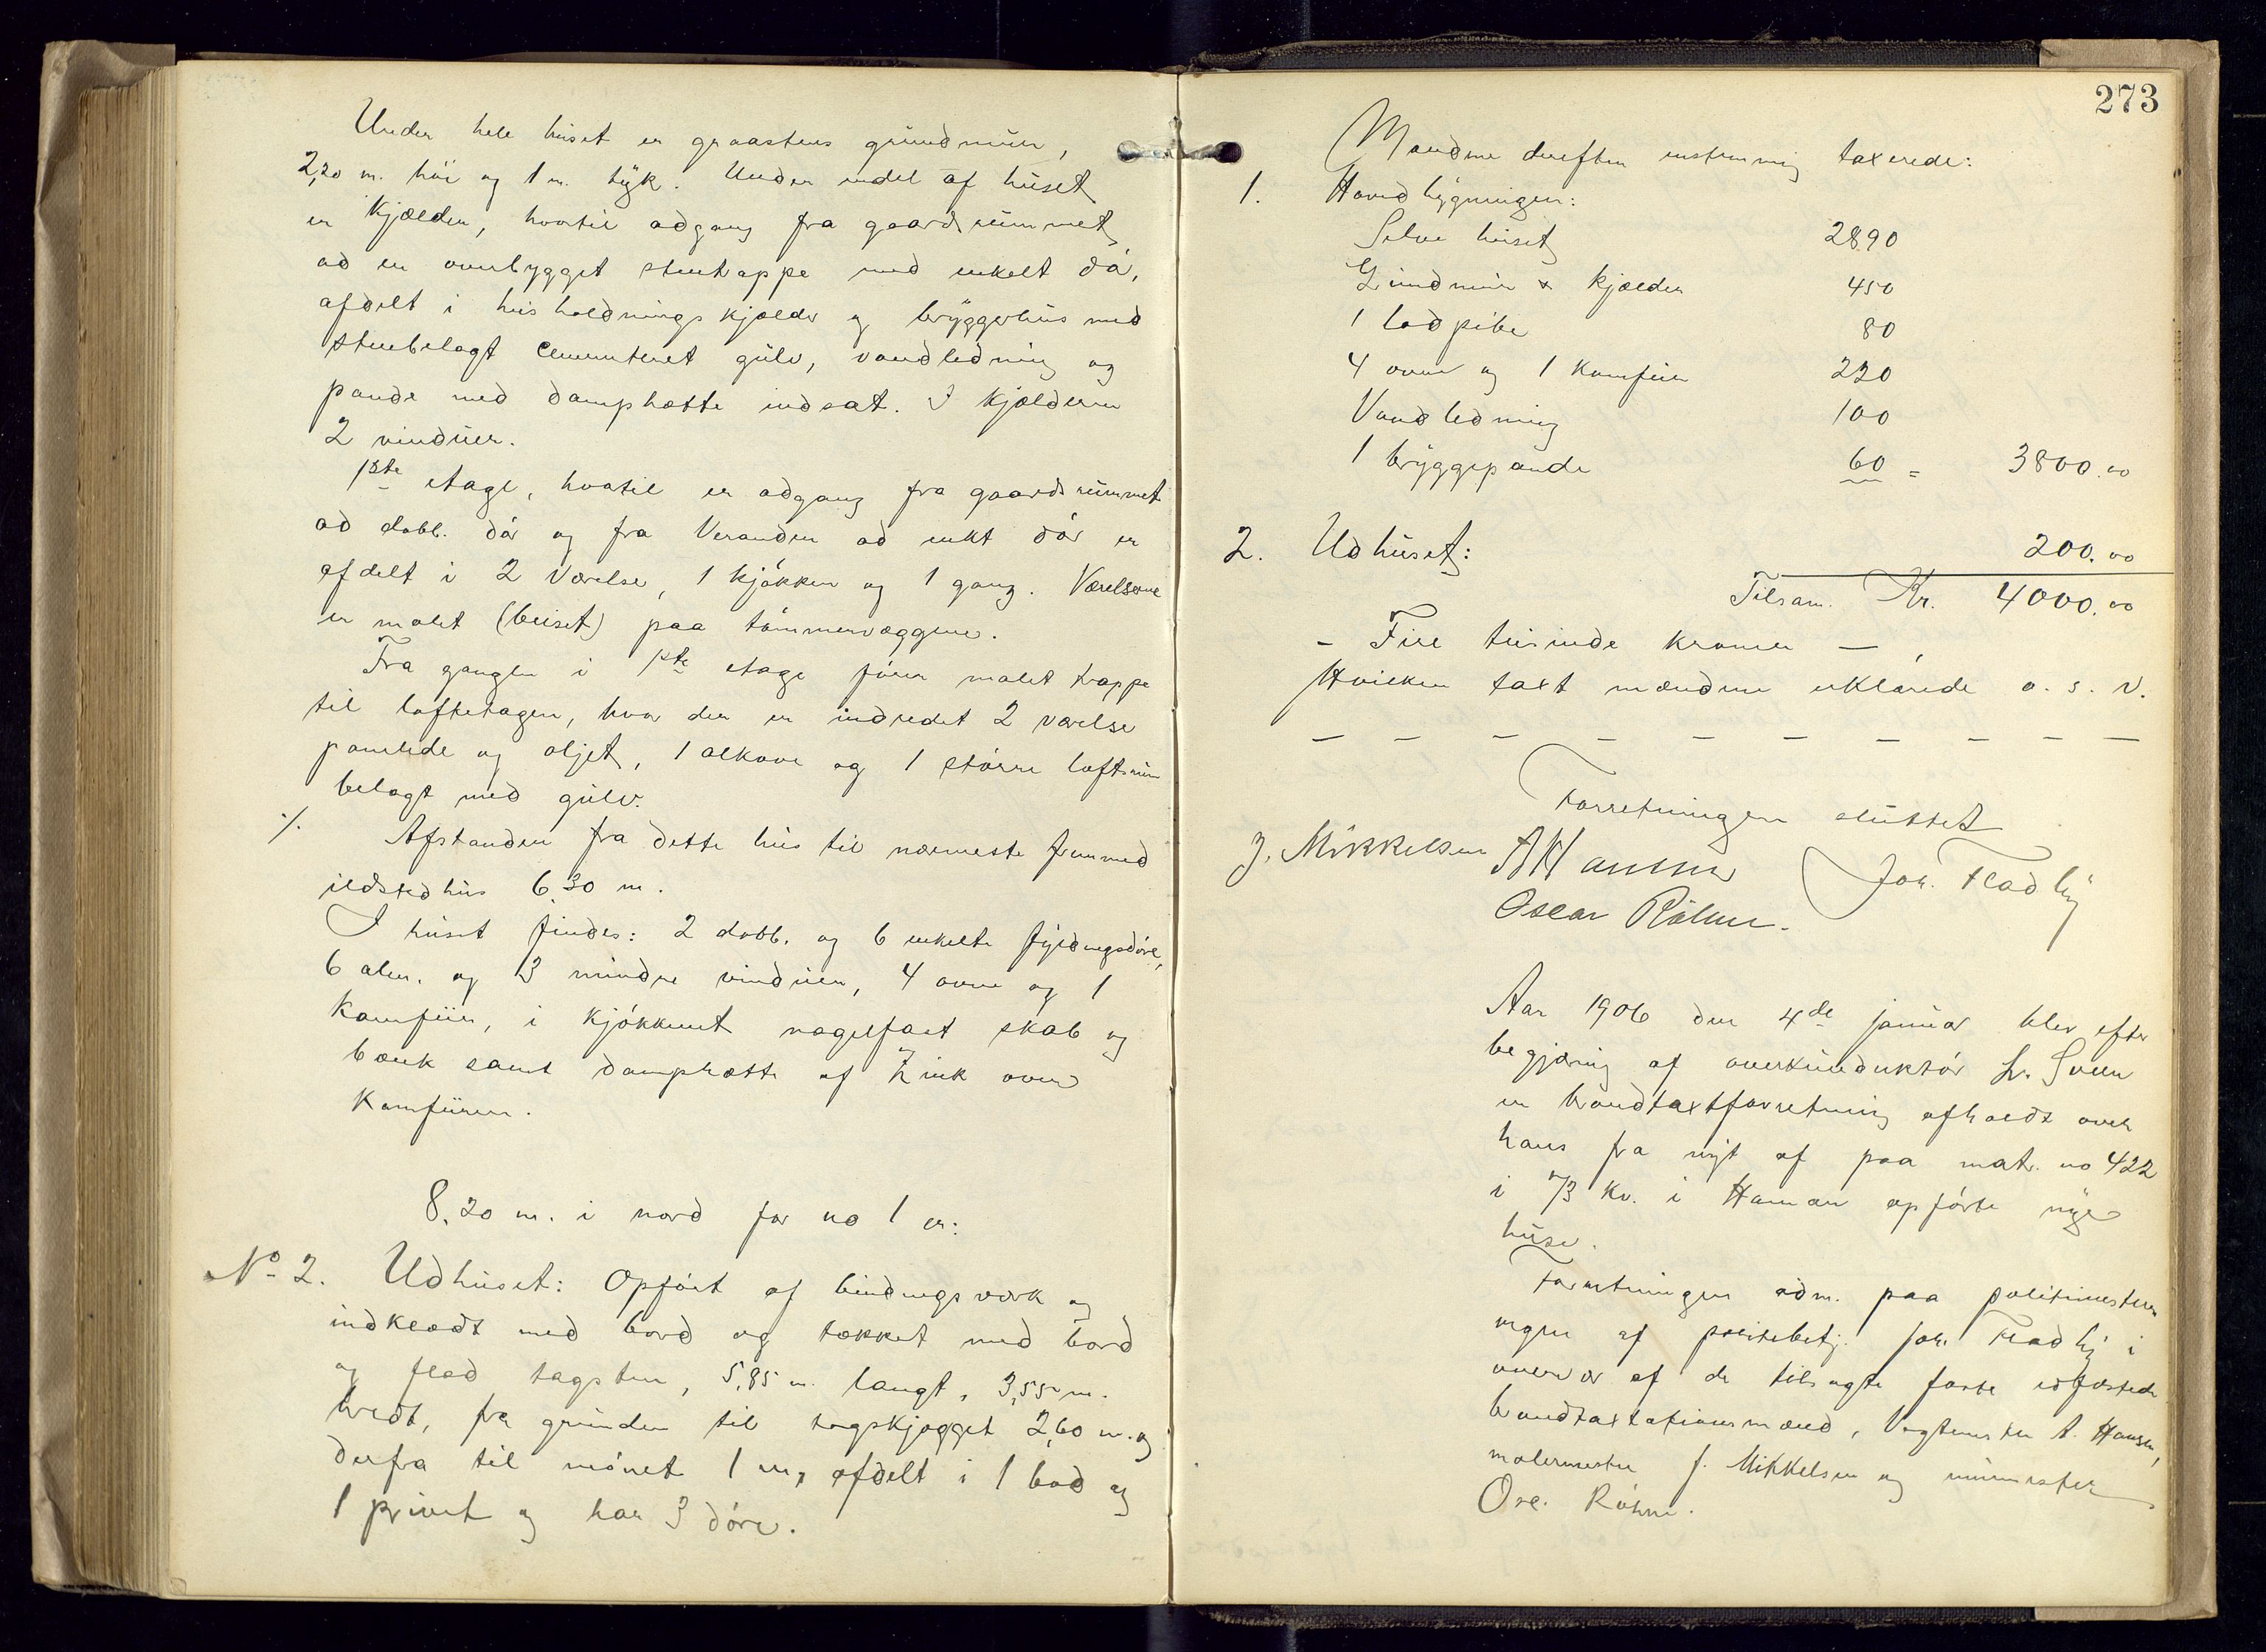 Under hele huset er graastens grundmur,
2,20 m. høi og 1 m. tyk. Under endel af huset
er kjælder, hvortil adgang fra gaardsrummet
ad en overbygget stentrappe med enkelt dør,
afdelt i husholdningskjelder og bryggerhus med
stenbelagt cementeret gulv, vandledning og
pande med damphætte indsat. I kjælderen
2 vinduer.
1ste etage, hvortil er adgang fra gaardsrummet
ad dobb. dør og fra Veranden ad enkt dør er
afdelt i 2 Værelse, 1 kjøkken og 1 gang. Værelserne
er malet (beiset) paa tømmervæggene.
Fra gangen i 1ste etage fører malet trappe
til loftetagen, hvor der er indredet 2 værelse
panelede og oljet, 1 alkove og 1 større loftsrum
belagt med gulv.
⁒ Afstanden fra dette hus til nærmeste fremmed
ildstedhus 6,30 m.
I huset findes: 2 dobb. og 6 enkelte fyldingsdøre,
6 alm. og 3 mindre vinduer, 4 ovne og 1
Komfur, i kjøkkenet nagelfast skab og
bænk samt damphætte af Zink over
Komfuren.
8,20 m. i nord for no 1 er:
No 2. Udhuset: Opført af bindingsværk og
indklædt med bord og tækket med bord
og flad tagsten, 5,85 m. langt, 3,55 m.
bredt, fra grunden til tagskjægget 2,60 m. og
derfra til mønet 1 m, afdelt i 1 bod og
1 privet og har 3 døre.
273
Mændene derefter enstemmig taxerede:
1. Hovedbygningen:
Selve huset 2890
Grundmur & kjælder 450
1 lodpibe 80
4 ovne og 1 Komfur 220
Vandledning 100
1 bryggepande 60 = 3800.00
2. Udhuset: 200.00
Tilsam. Kr. 4000.00
- Fire tusinde kroner -,
Hvilken taxt mændene erklærede o. s. v.
— — — — — — — — — —
Forretningen sluttet
J. Mikkelsen A Hansen Joh. Fladby
Oscar Röhne.
Aar 1906 den 4de januar blev efter
begjæring af overkonduktør Fr. Sveen
en brandtaxtforretning afholdt over
hans fra nyt af paa mat. no 422
i 7/3 kv. i Hamar opførte nye
huse.
Forretningen adm. paa politimesterens
vegne af politibetj. Joh. Fladby i
overvær af de tilsagte faste edfæstede
brandtaxtationsmænd, Vægtermester A. Hansen,
malermester J. Mikkelsen og murmester
Osc. Röhne.